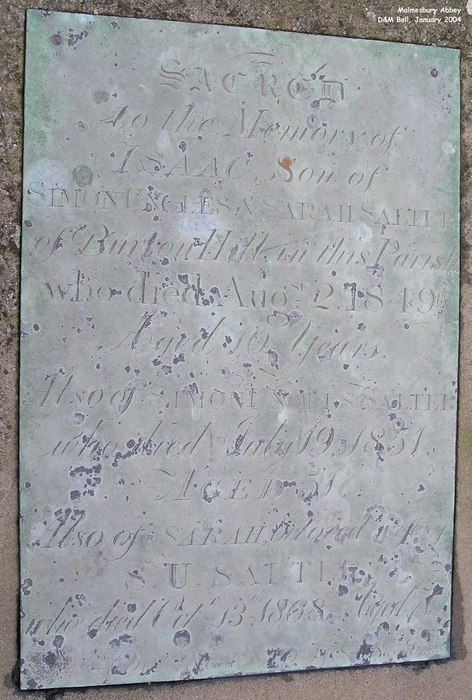 Malmesbury Abbey
D&M Ball, January 2004
SACRED
to the Memory of
ISAAC Son of
SIMON UNCLES & SARAH SALTER
of Burton Hill in this Parish
who died Augst 2, 1849,
Aged 16 Years.
Also of SIMON UNCLES SALTER
who died July 19, 1851,
AGED
Also of SARAH, beloved wife
S U SALTER
who died Octr 13th 1868, Aged